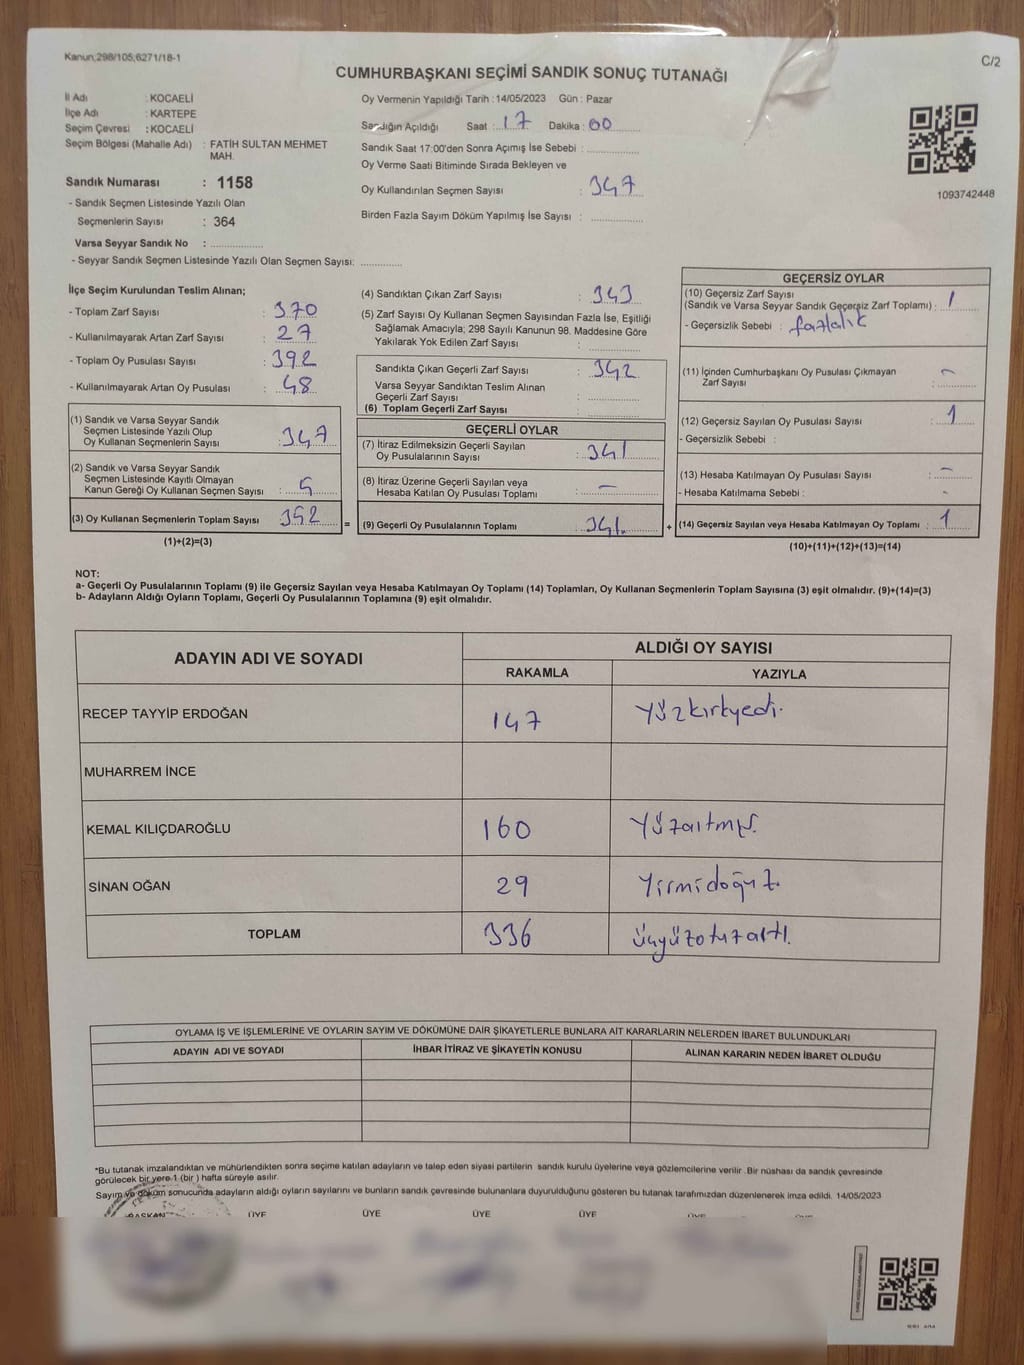 Kanun;298/105;6271/18-1
C/2
CUMHURBAŞKANI SEÇİMİ SANDIK SONUÇ TUTANAĞI
İl Adı : KOCAELİ
İlçe Adı : KARTEPE
Seçim Çevresi : KOCAELİ
Seçim Bölgesi (Mahalle Adı) : FATİH SULTAN MEHMET
MAH.
Sandık Numarası : 1158
- Sandık Seçmen Listesinde Yazılı Olan
Seçmenlerin Sayısı : 364
Varsa Seyyar Sandık No : ..................
- Seyyar Sandık Seçmen Listesinde Yazılı Olan Seçmen Sayısı: ..............
Oy Vermenin Yapıldığı Tarih :14/05/2023 Gün : Pazar
Sandığın Açıldığı Saat : 17 Dakika : 00
Sandık Saat 17:00'den Sonra Açımış İse Sebebi : ..................
Oy Verme Saati Bitiminde Sırada Bekleyen ve
Oy Kullandırılan Seçmen Sayısı : 347
Birden Fazla Sayım Döküm Yapılmış İse Sayısı : ..................
1093742448
İlçe Seçim Kurulundan Teslim Alınan;
- Toplam Zarf Sayısı : 370
- Kullanılmayarak Artan Zarf Sayısı : 27
- Toplam Oy Pusulası Sayısı : 392
- Kullanılmayarak Artan Oy Pusulası : 48
(1) Sandık ve Varsa Seyyar Sandık
Seçmen Listesinde Yazılı Olup
Oy Kullanan Seçmenlerin Sayısı : 347
(2) Sandık ve Varsa Seyyar Sandık
Seçmen Listesinde Kayıtlı Olmayan
Kanun Gereği Oy Kullanan Seçmen Sayısı :
(3) Oy Kullanan Seçmenlerin Toplam Sayısı 352 =
(1)+(2)=(3)
(4) Sandıktan Çıkan Zarf Sayısı : 343
(5) Zarf Sayısı Oy Kullanan Seçmen Sayısından Fazla İse, Eşitliği
Sağlamak Amacıyla; 298 Sayılı Kanunun 98. Maddesine Göre
Yakılarak Yok Edilen Zarf Sayısı : ..................
Sandıkta Çıkan Geçerli Zarf Sayısı : 342
Varsa Seyyar Sandıktan Teslim Alınan
Geçerli Zarf Sayısı : ..................
(6) Toplam Geçerli Zarf Sayısı : ..................
GEÇERLİ OYLAR
(7) İtiraz Edilmeksizin Geçerli Sayılan
Oy Pusulalarının Sayısı : 341
(8) İtiraz Üzerine Geçerli Sayılan veya
Hesaba Katılan Oy Pusulası Toplamı : –
(9) Geçerli Oy Pusulalarının Toplamı : 341. +
GEÇERSİZ OYLAR
(10) Geçersiz Zarf Sayısı
(Sandık ve Varsa Seyyar Sandık Geçersiz Zarf Toplamı) : 1
- Geçersizlik Sebebi : fazlalık
(11) İçinden Cumhurbaşkanı Oy Pusulası Çıkmayan
Zarf Sayısı : –
(12) Geçersiz Sayılan Oy Pusulası Sayısı : 1
- Geçersizlik Sebebi :
(13) Hesaba Katılmayan Oy Pusulası Sayısı : –
- Hesaba Katılmama Sebebi : -
(14) Geçersiz Sayılan veya Hesaba Katılmayan Oy Toplamı : 1
(10)+(11)+(12)+(13)=(14)
NOT:
a- Geçerli Oy Pusulalarının Toplamı (9) ile Geçersiz Sayılan veya Hesaba Katılmayan Oy Toplamı (14) Toplamları, Oy Kullanan Seçmenlerin Toplam Sayısına (3) eşit olmalıdır. (9)+(14)=(3)
b- Adayların Aldığı Oyların Toplamı, Geçerli Oy Pusulalarının Toplamına (9) eşit olmalıdır.
ADAYIN ADI VE SOYADI
ALDIĞI OY SAYISI
RAKAMLA YAZIYLA
RECEP TAYYİP ERDOĞAN 147 Yüzkırkyedi.
MUHARREM İNCE
KEMAL KILIÇDAROĞLU 160 Yüzaltmış.
SİNAN OĞAN 29 Yirmidoğuz.
TOPLAM 336 üçyüzotuzaltı.
OYLAMA İŞ VE İŞLEMLERİNE VE OYLARIN SAYIM VE DÖKÜMÜNE DAİR ŞİKAYETLERLE BUNLARA AİT KARARLARIN NELERDEN İBARET BULUNDUKLARI
ADAYIN ADI VE SOYADI İHBAR İTİRAZ VE ŞİKAYETİN KONUSU ALINAN KARARIN NEDEN İBARET OLDUĞU
*Bu tutanak imzalandıktan ve mühürlendikten sonra seçime katılan adayların ve talep eden siyasi partilerin sandık kurulu üyelerine veya gözlemcilerine verilir .Bir nüshası da sandık çevresinde
görülecek bir yere 1 (bir ) hafta süreyle asılır.
Sayım ve döküm sonucunda adayların aldığı oyların sayılarını ve bunların sandık çevresinde bulunanlara duyurulduğunu gösteren bu tutanak tarafımızdan düzenlenerek imza edildi. 14/05/2023
BAŞKAN ÜYE ÜYE ÜYE ÜYE